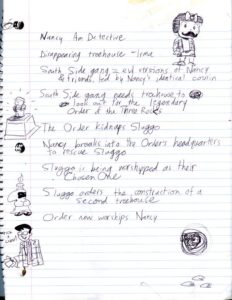 Nancy Am Detective
Disappearing treehouse - time
South Side gang = evil versions of Nancy
& friends, led by Nancy's identical cousin
South Side gang needs treehouse to
look out for the legendary
Order of the Three Rocks
The Order kidnaps Sluggo
Nancy breaks into the Order's headquarters
to rescue Sluggo
Sluggo is being worshipped as their
Chosen One
Sluggo orders the construction of a
second treehouse
Order now worships Nancy